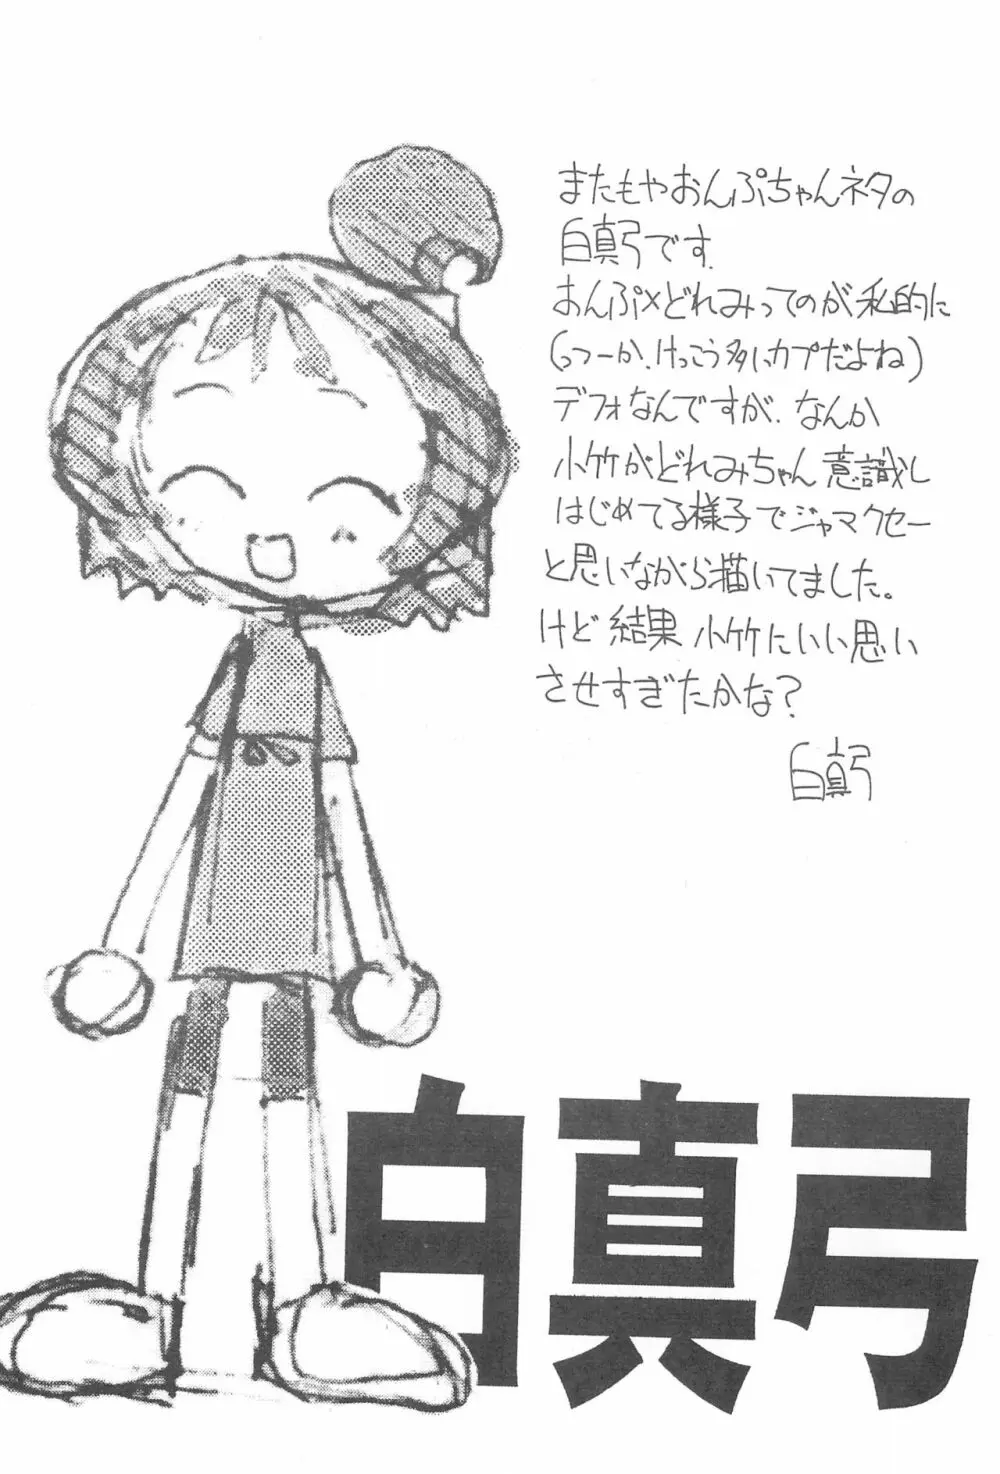 またもやおんぷちゃんネタの
白真弓です.
おんぷ×どれみってのが私的に
(っつーか、けっこう多いカプだよね)
デフォなんですが、なんか
小竹がどれみちゃん意識し
はじめてる様子でジャマクセー
と思いながら描いてました。
けど結果 小竹にいい思い
させすぎたかな?
白真弓
白真弓